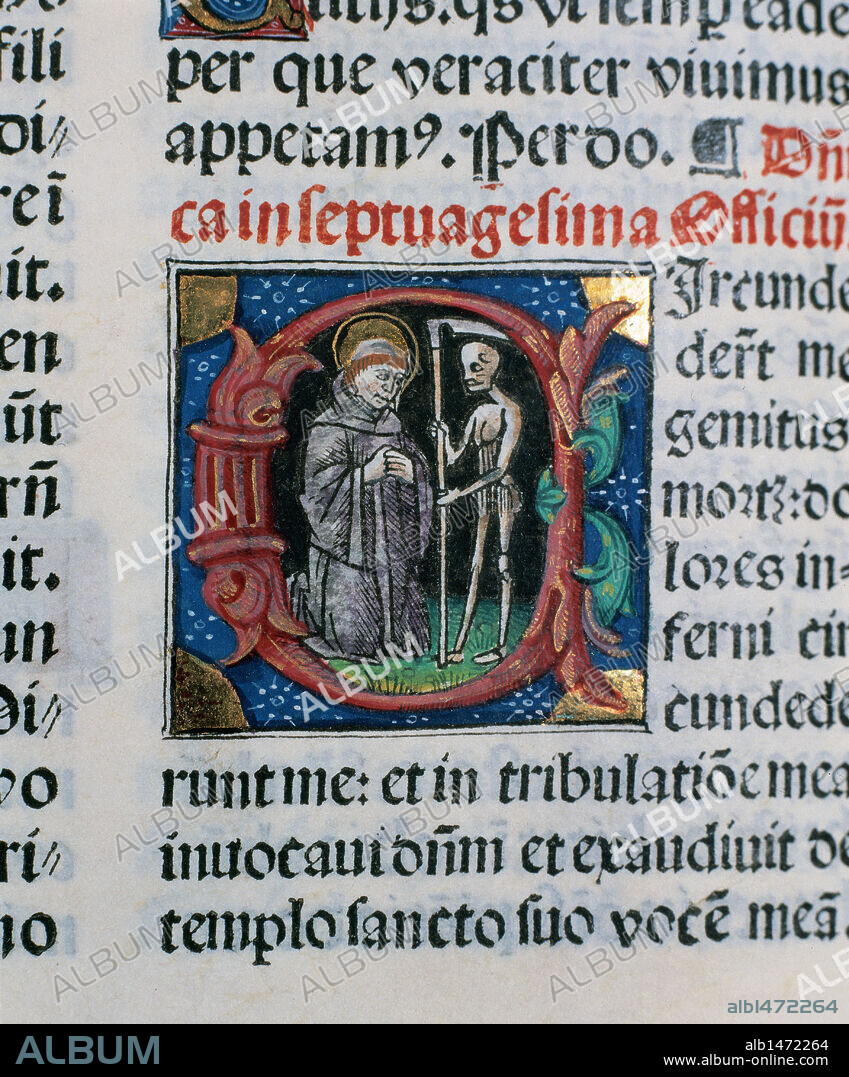 fili
di//
reī
nit.
en
ūt
rn̄
it.
un
di//
vo
ri//
no
per que veraciter viuimus
appetamꝰ. Per do. ¶ Dn̄i
ca in septuagesima Officiū
Circunde
der̄t me
gemitus
mortꝫ: do
lores in⸗
ferni cir
cundede
runt me: et in tribulatiōe mea
inuocaui dn̄m et exaudiuit de
templo sancto suo vocē meā.
ALBUM
albl472264
alb1472264
www.album-online.com